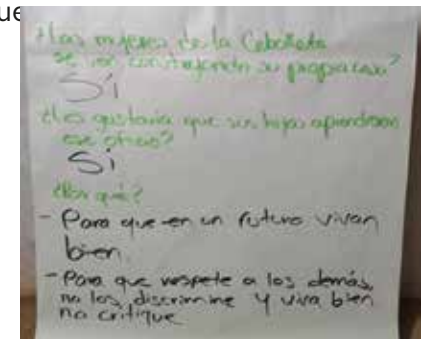 ue
Las mujeres de la Cebolleta
se van construyendo su propia casa?
Sí
¿Les gustaría que sus hijos aprendieran
ese oficio?
Sí
¿Por qué?
- Para que en un futuro vivan
bien.
- Para que respete a los demás,
no los discrimine y viva bien
no critique